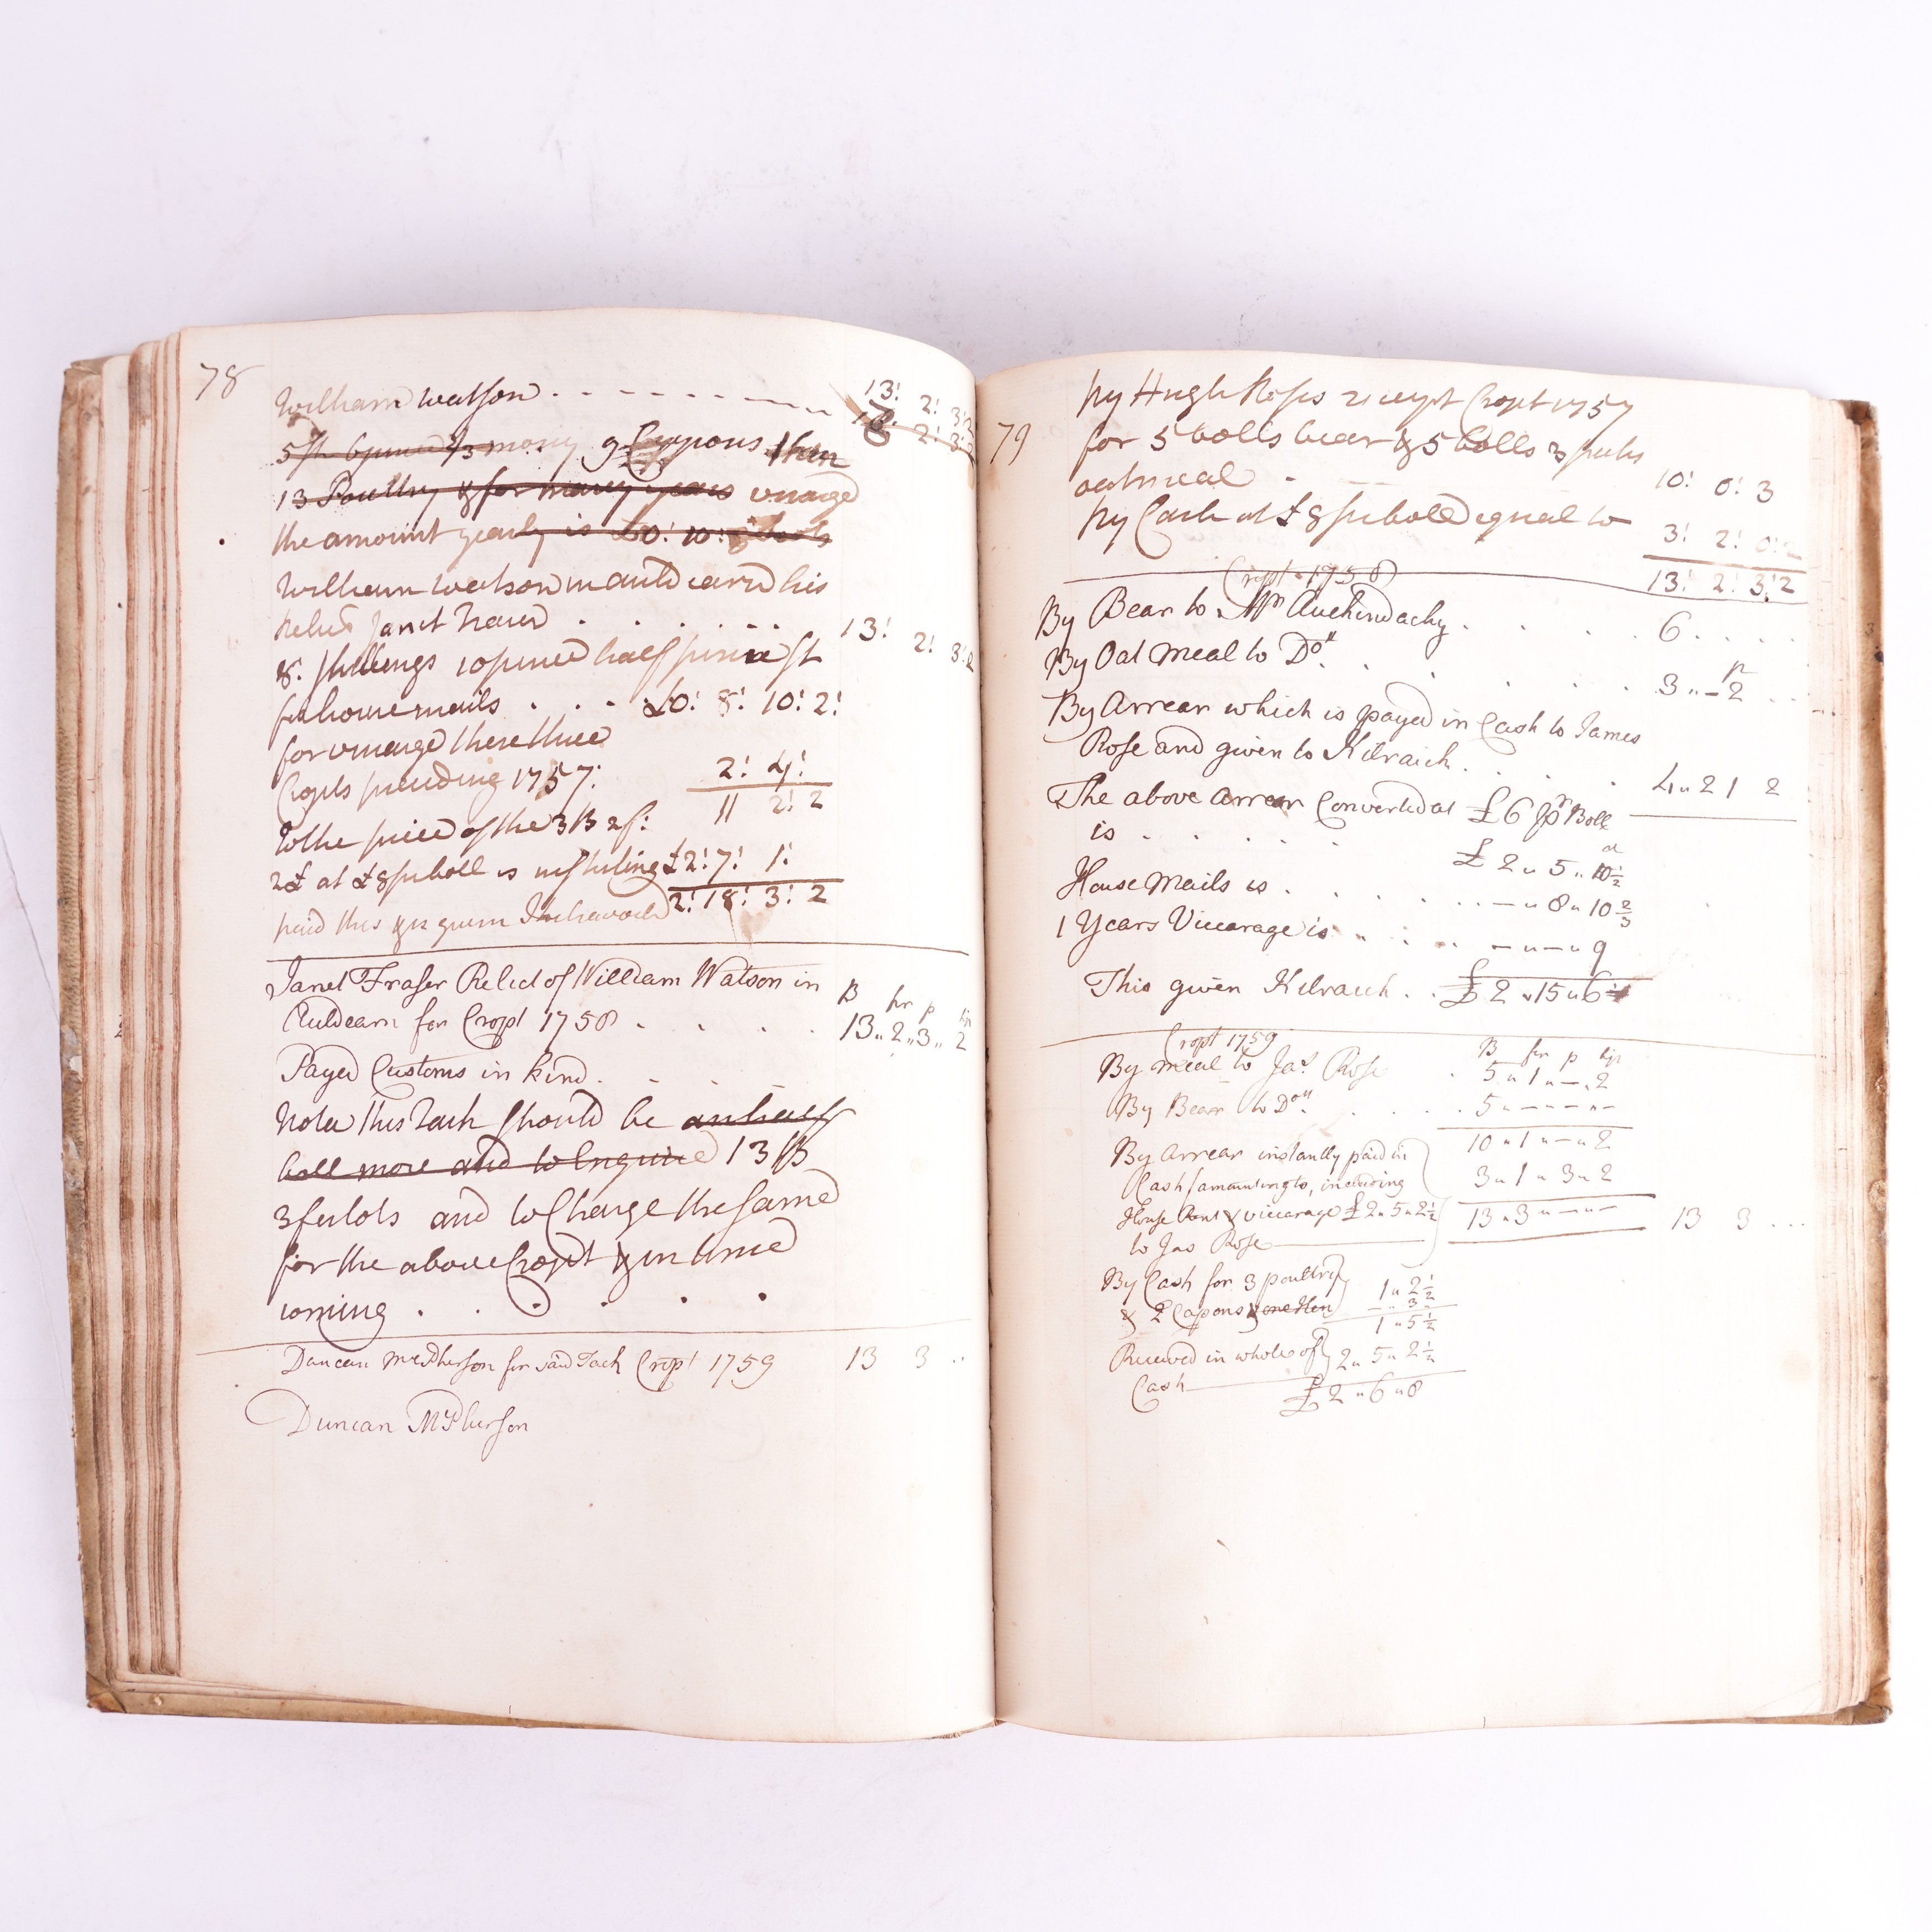 78
William Watson . . . 13! 2! 3!2
18! 2! 3!2
9 Capons 1 hen
13 Poultry & for many years vicarage
the amount yearly is £0! 10!
William Watson in auldearn his
relict Janet fraser . . . . . 13! 2! 3!2
8 shillings 10 pence half
for house mails . . . £0! 8! 10! 2!
for vicarage these three
Cropts preceding 1757: 2! 4!
11 2! 2
To the price of the 3 B 2f:
2£ at £8 per boll is in sterling £2! 7! 1!
paid this 2! 18! 3! 2
Janet Fraser Relict of William Watson in
B fir p lip
Auldearn for Cropt 1758 . . . . 13,, 2,, 3,, 2
Payed Customs in kind . . . .
Note this Tack should be an half
boll more and to Enquire 13 B
3 firlots and to Charge the same
for the above Cropt & in time
coming . . . . . .
Duncan McPherson for said Tack Cropt 1759 13 3 ..
Duncan McPherson
79
by Hugh Roses receipt Cropt 1757
for 5 bolls bear & 5 bolls 3 pecks
oatmeal . 10! 0! 3
by Cash at £8 per boll equal to 3! 2! 0!2
13! 2! 3!2
Cropt 1758
By Bear to Mr Auchindachy . . . . 6 . . . .
By Oat Meal to Do . . . . . . 3 ,, – 2 . .
By Arrear which is payed in Cash to James
Rose and given to Kilraick . . . 4 ,, 2 1 2
The above Arrear Converted at £6 pr Boll
is . . . . . £ 2 ,, 5 ,, 10½
House Mails is . . . . . . — ,, 8 ,, 10⅔
1 Years Viccarage is . . . . — ,, — ,, 9
This given Kilraick . . £ 2 ,, 15 ,, 6
Cropt 1759
B fir p lip
By meal to Jas. Rose . 5 ,, 1 ,, — ,, 2
By Bear to Do . . . . . 5 ,, — — — —
10 ,, 1 ,, — ,, 2
By Arrear instantly paid in
Cash (amounting to, including 3 ,, 1 ,, 3 ,, 2
House Rent & viccarage £2 ,, 5 ,, 2½ 13 ,, 3 ,, — ,, — 13 3 ...
to Jas Rose
By Cash for 3 poultry 1 ,, 2½
& 2 Capons & one Hen — ,, 3
1 ,, 5½
Received in whole of 2 ,, 5 ,, 2½
Cash £ 2 ,, 6 ,, 8